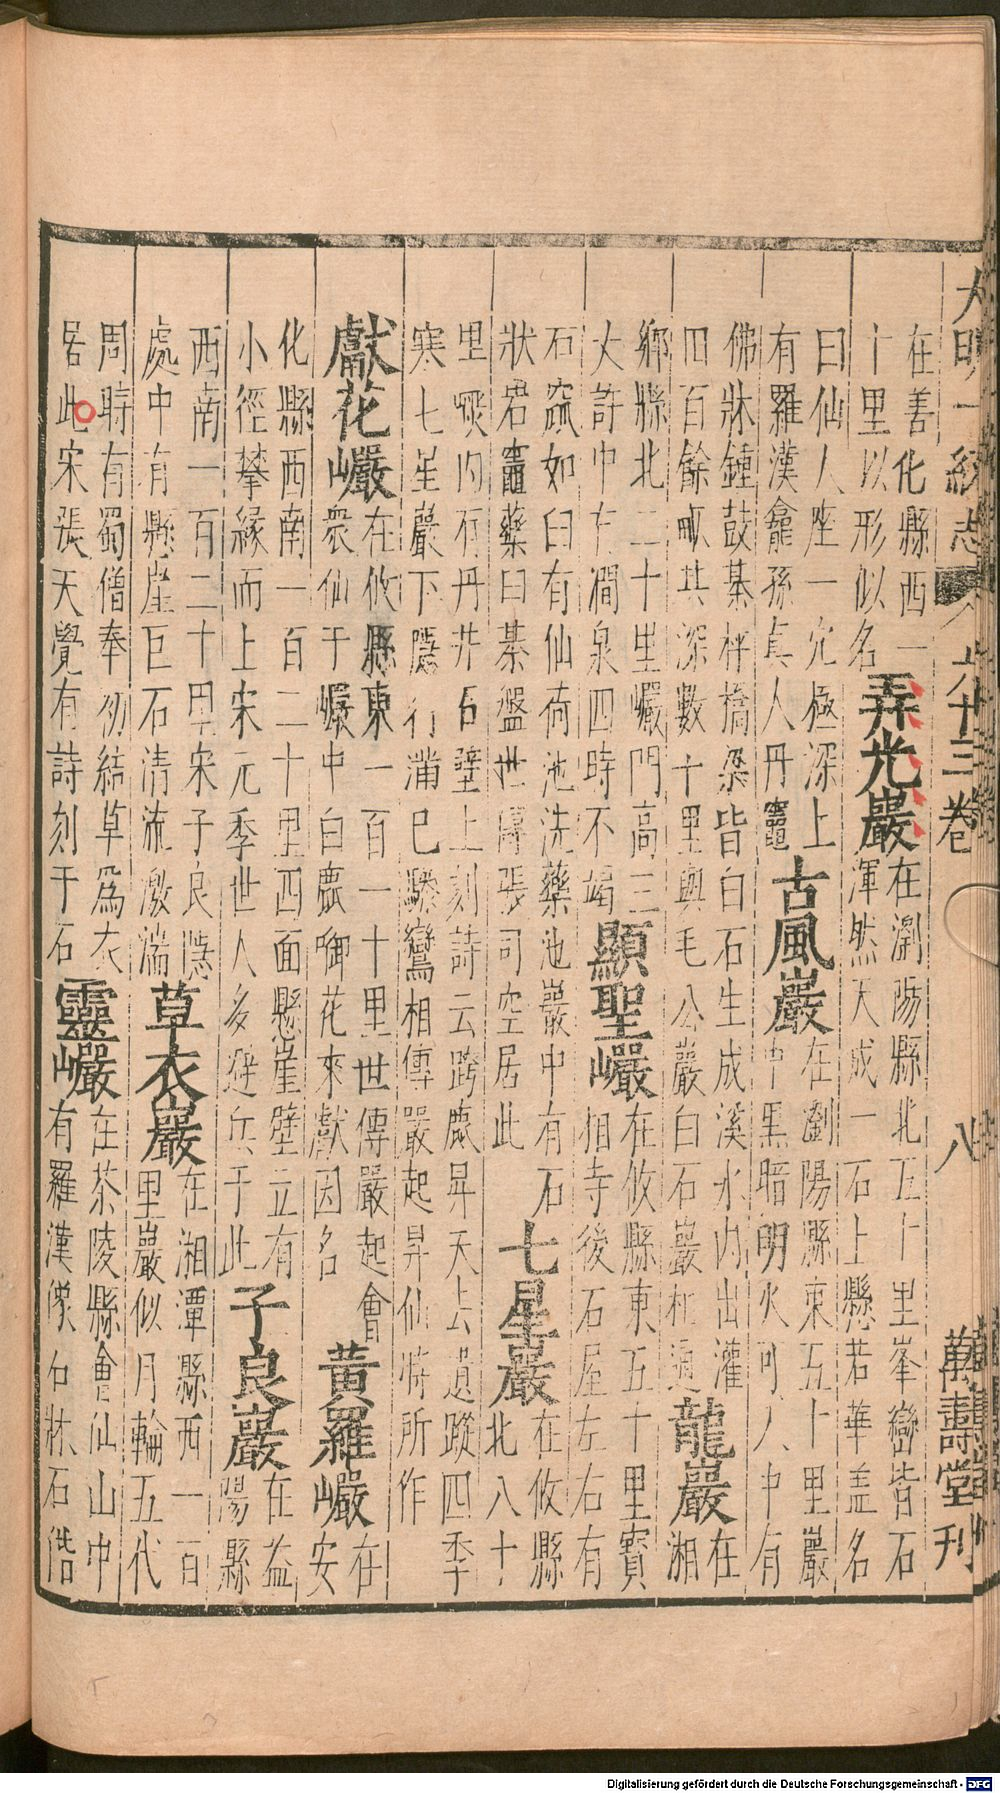 大明一統志 六十三卷 八 萬壽堂刊
在善化縣西一
十里以形似名
弄光巖
在瀏陽縣北五十里峯巒皆石
渾然天成一石上懸若華盖名
曰仙人座一穴極深上
有羅漢龕孫真人丹竈
古風巖
在瀏陽縣東五十里巖
中黑暗明火可入中有
佛牀鍾鼓棊枰橋梁皆白石生成溪水内出灌
四百餘畝其深數十里與毛公巖白石巖相通
龍巖
在
湘
鄉縣北二十里巗門高三
丈許中有澗泉四時不竭
顯聖巗
在攸縣東五十里寳
相寺後石屋左右有
石窳如臼有仙倚池洗藥池巖中有石
狀若竈藥臼棊盤世傳張司空居此
七星巖
在攸縣
北八十
里内有丹井石壁上刻詩云跨鹿昇天去遺蹤四季
寒七星巖下隱行滿已驂鸞相傳嚴起昇仙時所作
獻花巗
在攸縣東一百一十里世傳嚴起會
衆仙于巗中白鹿啣花來獻因名
黃羅巗
在
安
化縣西南一百二十里四面懸崖壁立有
小徑攀緣而上宋元季世人多避兵于此
子良巖
在益
陽縣
西南一百二十里宋子良隱
處中有縣崖巨石清流激湍
草衣巖
在湘潭縣西一百
里巖似月輪五代
周時有蜀僧奉初結草爲衣
居此宋張天覺有詩刻于石
靈巗
在茶陵縣會仙山中
有羅漢像石牀石
Digitalisierung gefördert durch die Deutsche Forschungsgemeinschaft - DFG